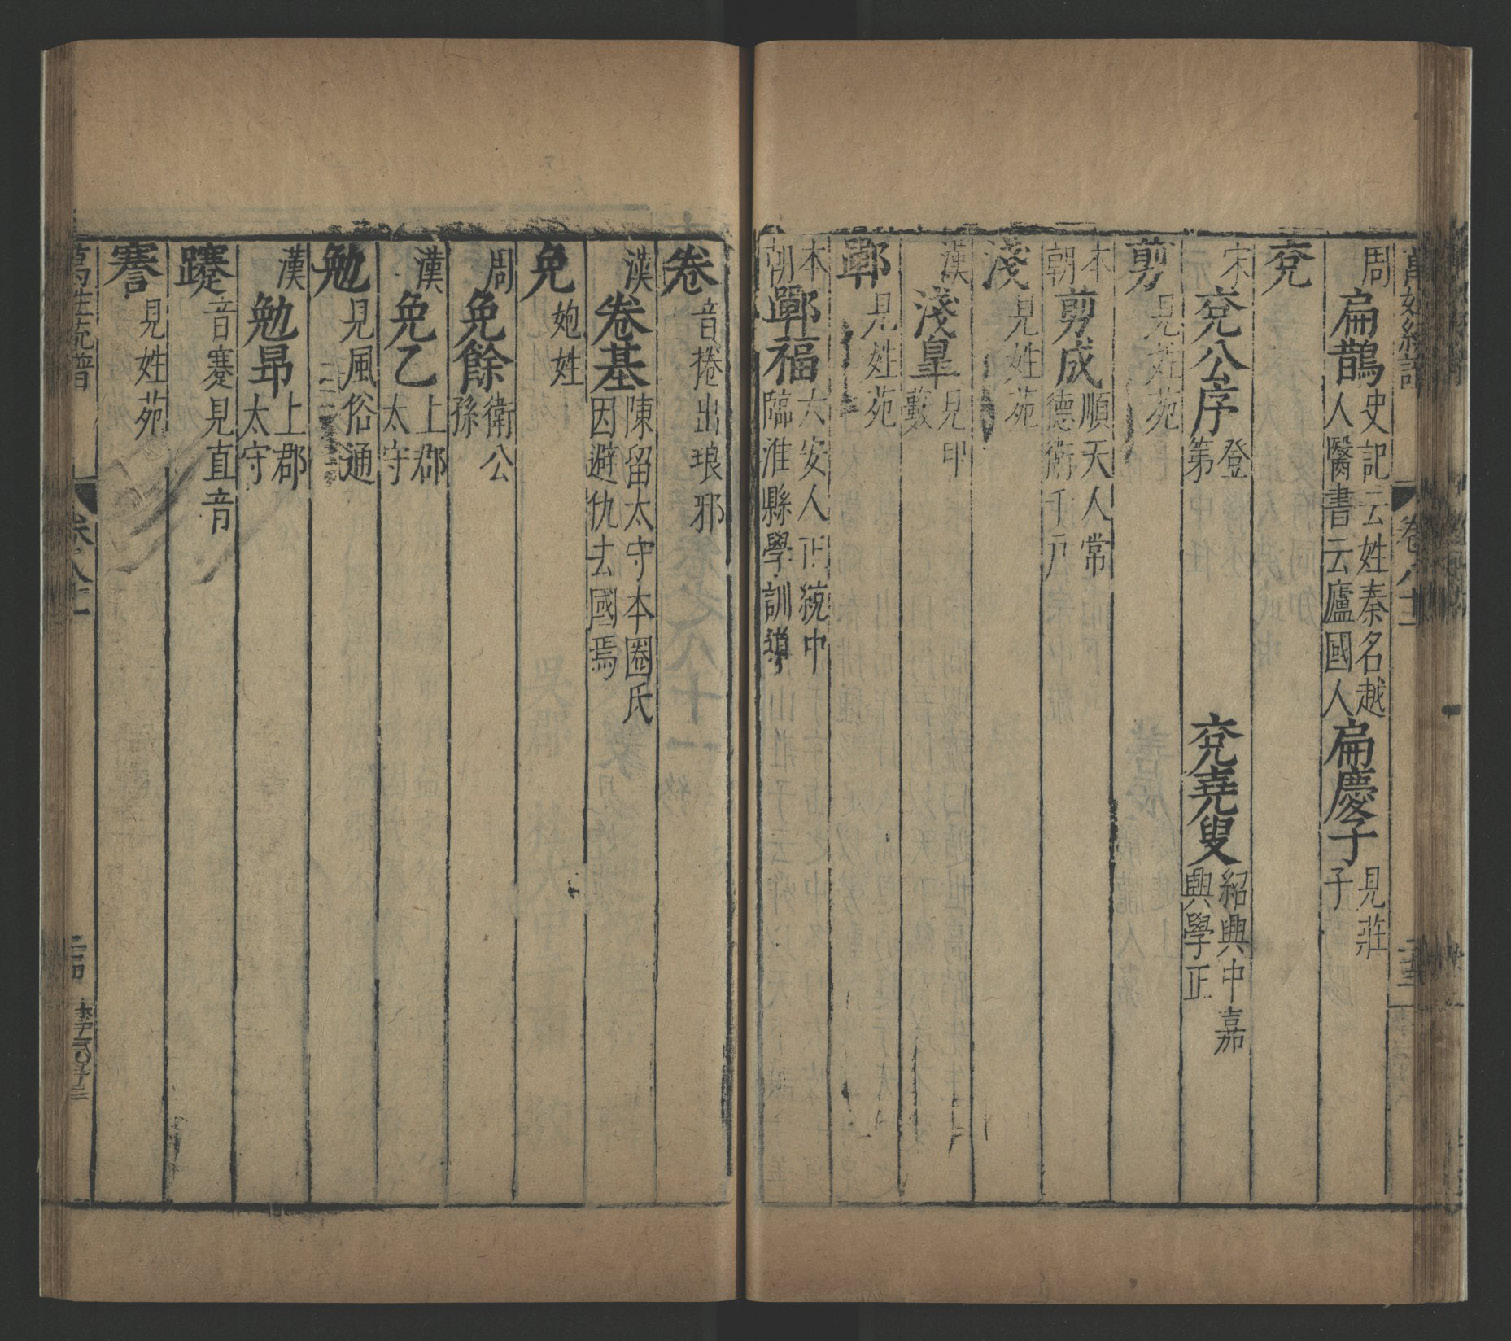 萬姓統譜 卷八十一
周 扁鵲 史記云姓秦名越人醫書云廬國人 扁慶子 見莊子
兗
宋 兗公序 登第 兗堯叟 紹興中嘉興學正
剪 見姓苑
本朝 剪成 順天人常德衛千戶
淺 見姓苑
漢 淺皐 見甲數
鄲 見姓苑
本朝 鄲福 六安人正統中臨淮縣學訓導
卷 音捲出琅邪
漢 卷基 陳留太守本圈氏因避仇去國焉
免 姽姓
周 免餘 衛公孫
漢 免乙 上郡太守
勉 見風俗通
漢 勉昻 上郡太守
蹇 音蹇見直音
謇 見姓苑
萬姓統譜 卷八十一